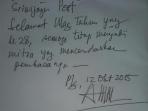 Sriwijaya Post
Selamat Ulas Tahun yang
ke 28, semoga tetap menjadi
mitra yang mencerdaskan
pembacanya -
Plg, 12 Okt 2015